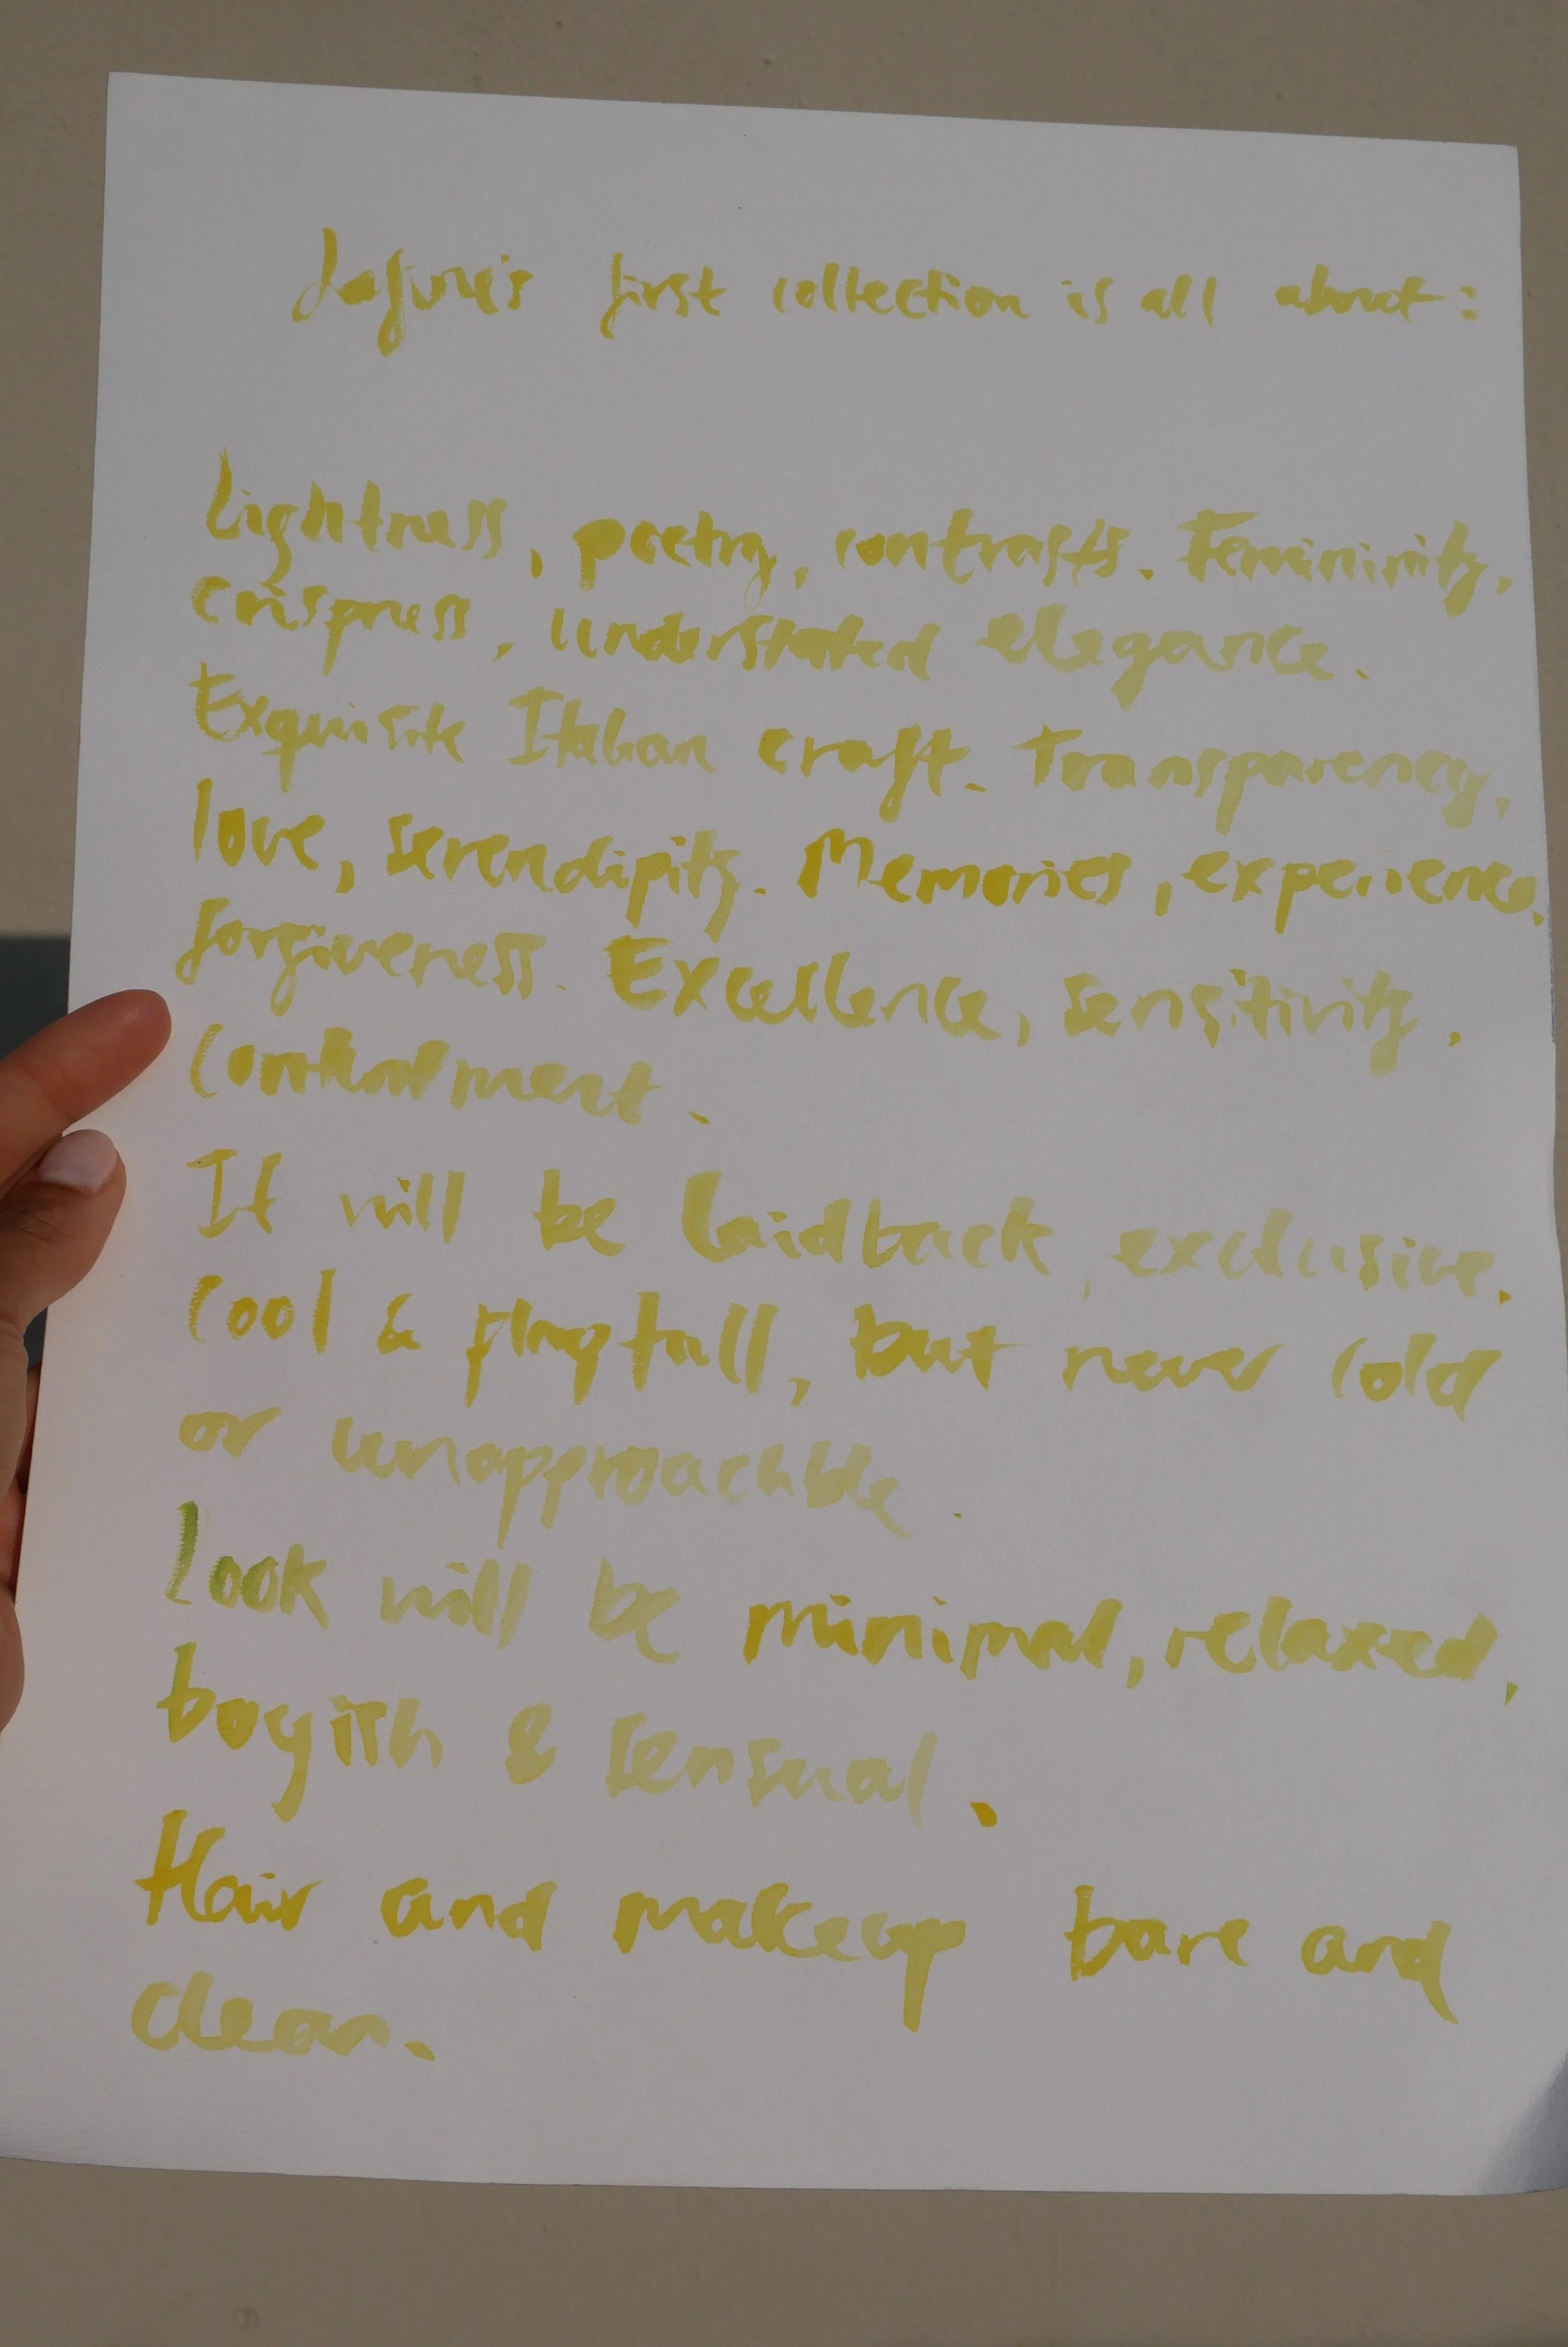 first collection is all about:
Lightness, poetry, contrasts. Femininity,
crispness, understated elegance.
Exquisite Italian craft. Transparency,
love, serendipity. Memories, experience.
forgiveness. Excellence, sensitivity.
It will be laidback, exclusive.
Cool & playfull, but never cold
or unapproachble.
Look will be minimal, relaxed,
boyish & sensual.
Hair and makeup bare and
clean.